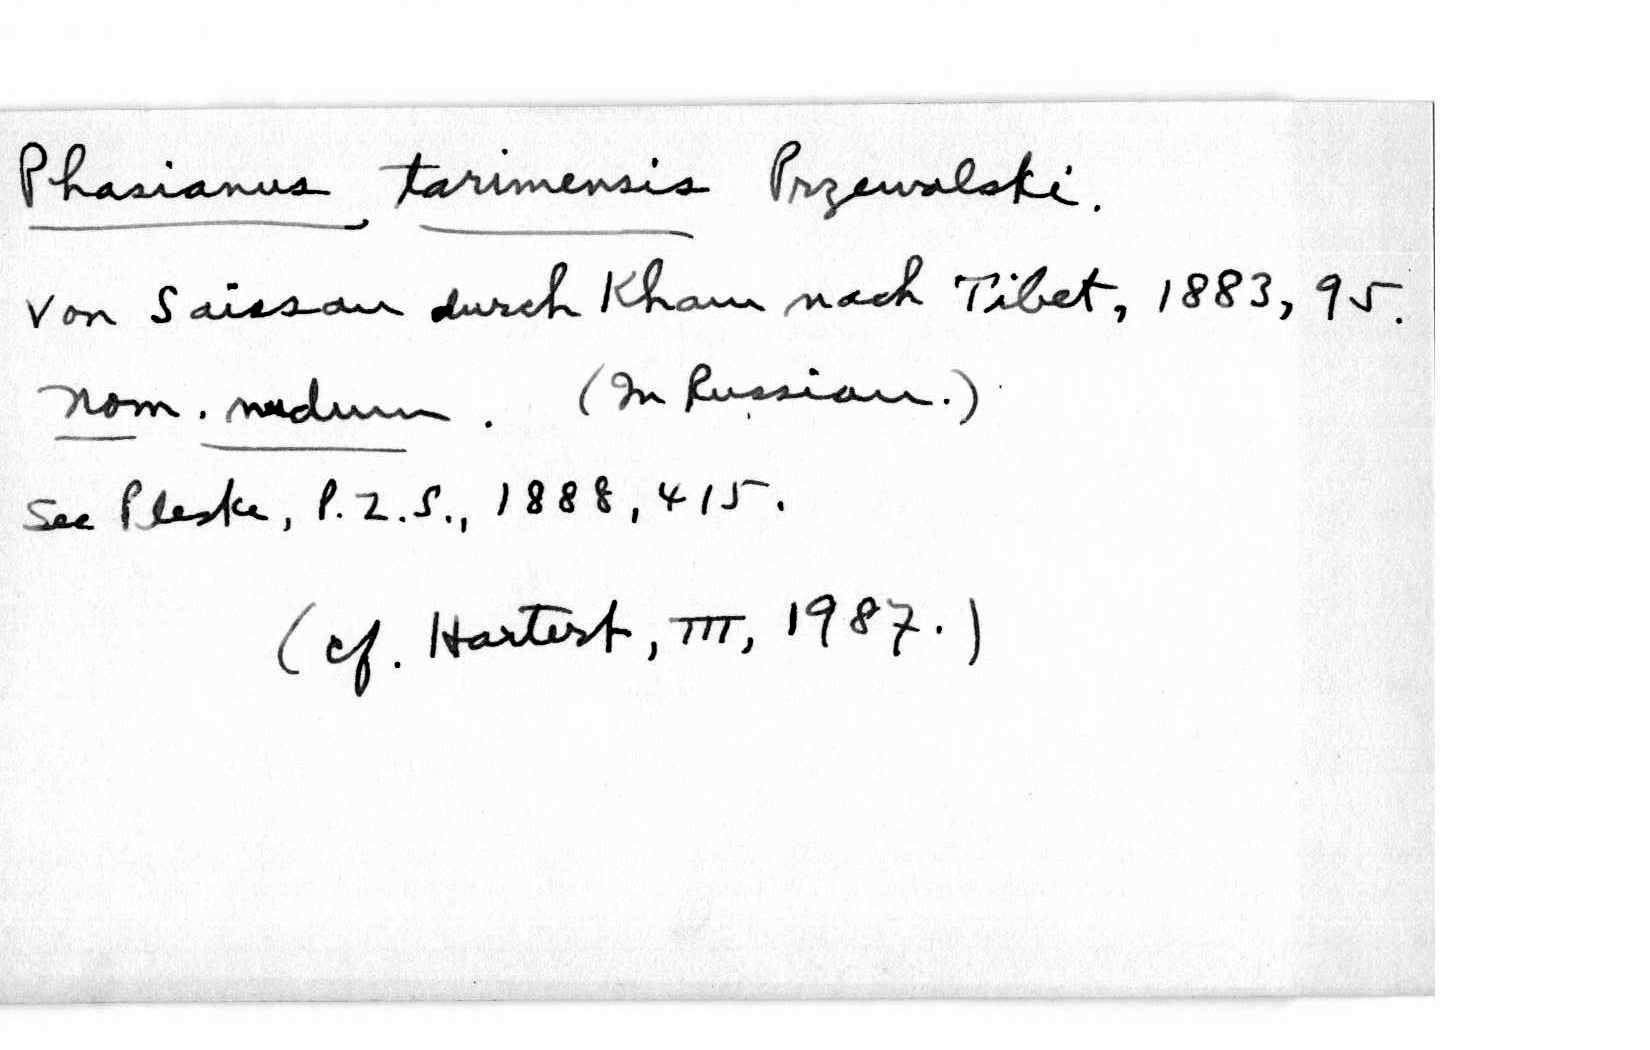 Phasianus tarimensis Przewalski.
Von Saissan durch Kham nach Tibet, 1883, 95.
nom. nudum. (In Russian.)
See Pleske, P.Z.S., 1888, 415.
(cf. Hartert, III, 1987.)